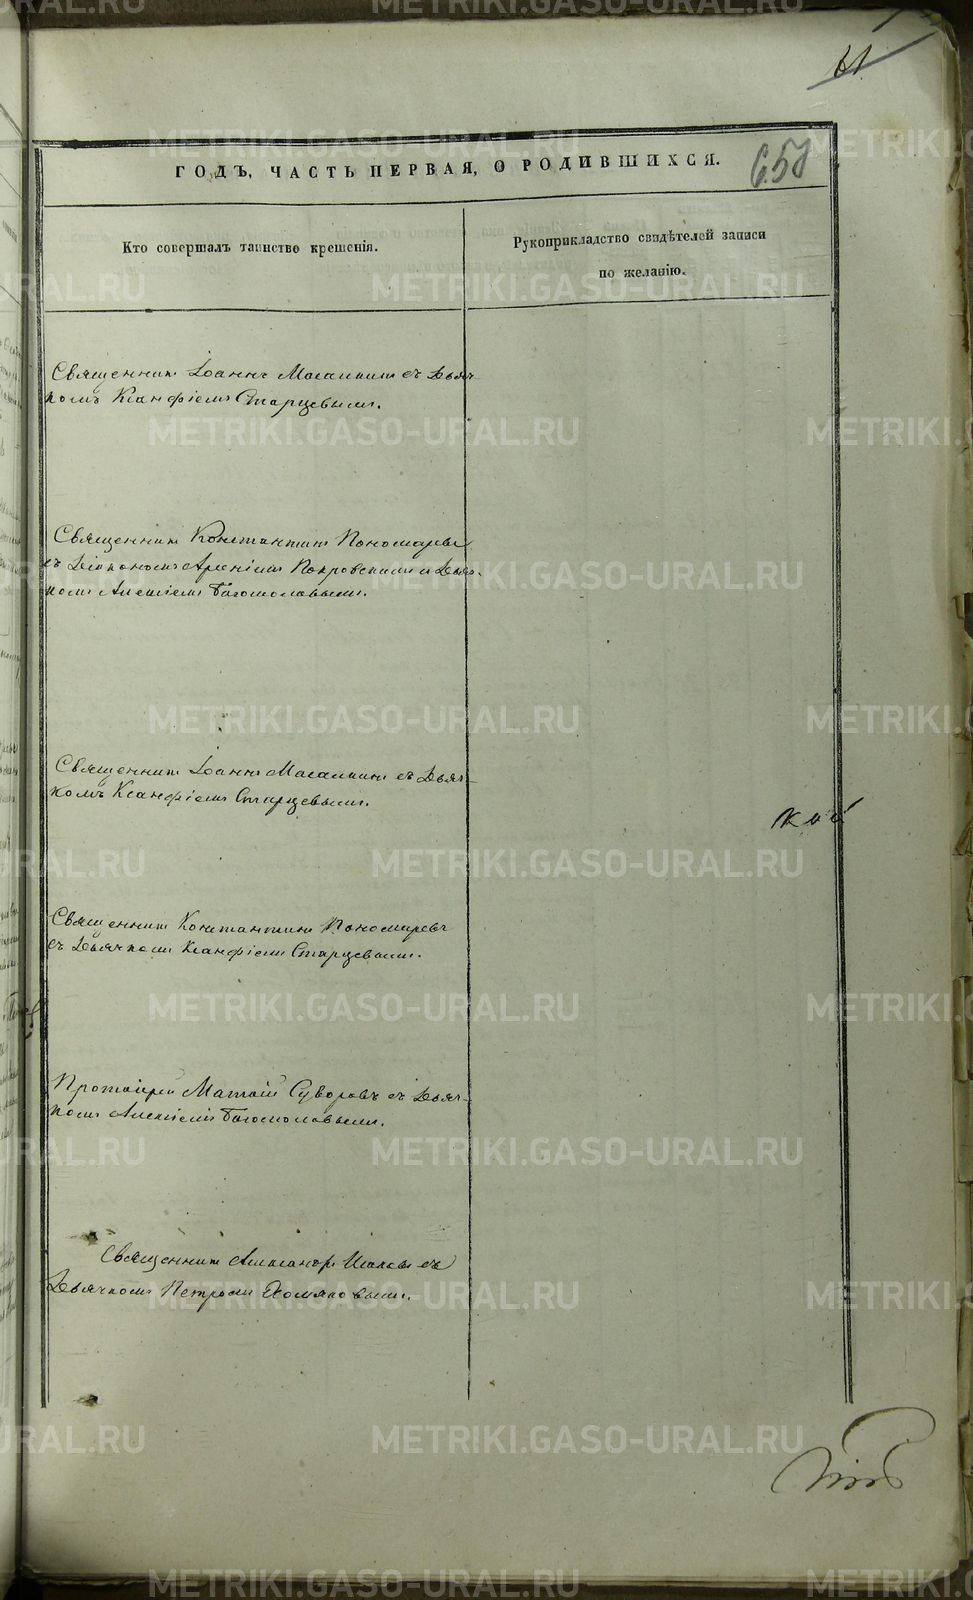 61
ГОДЪ, ЧАСТЬ ПЕРВАЯ, О РОДИВШИХСЯ.
657
Кто совершалъ таинство крещенія.
Рукоприкладство свидѣтелей записи
по желанію.
Священникъ Іоаннъ Масалкинъ съ Дьяч-
комъ Ксанфіемъ Старцевымъ.
Священникъ Константинъ Пономаревъ
съ Діакономъ Арсеніемъ Покровскимъ и Дьяч-
комъ Алексіемъ Богословымъ.
Священникъ Іоаннъ Масалкинъ съ Дьяч-
комъ Ксанфіемъ Старцевымъ.
кой
Священникъ Константинъ Пономаревъ
съ Дьячкомъ Ксанфіемъ Старцевымъ.
Протоіерей Матвій Суворовъ съ Дьяч-
комъ Алексіемъ Богословымъ.
Священникъ Александръ съ
Дьячкомъ Петромъ Хомяковымъ.
METRIKI.GASO-URAL.RU